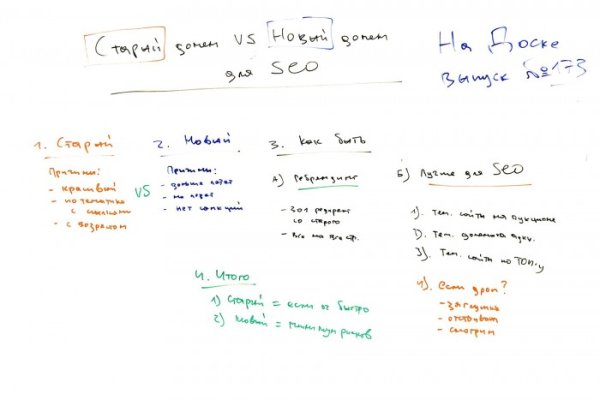 Старый домен VS Новый домен
для SEO
На Доске
выпуск №173
1. Старый
Причины:
- красивый
- по тематике
с ссылками
- с возрастом
VS
2. Новый
Причины:
- дольше
- нет санкций
3. Как быть
А) Ребрендинг
- 301 редирект
со старого
- Все на все стр.
Б) Лучше для SEO
1). Тем. сайты на аукционе
2). Тем. домена аукц.
3). Тем. сайты по ТОП-у
4). если дроп?
- заглушка
- отстаивать
- смотрим
4. Итого
1) Старый = если оч быстро
2) Новый = минимум рисков